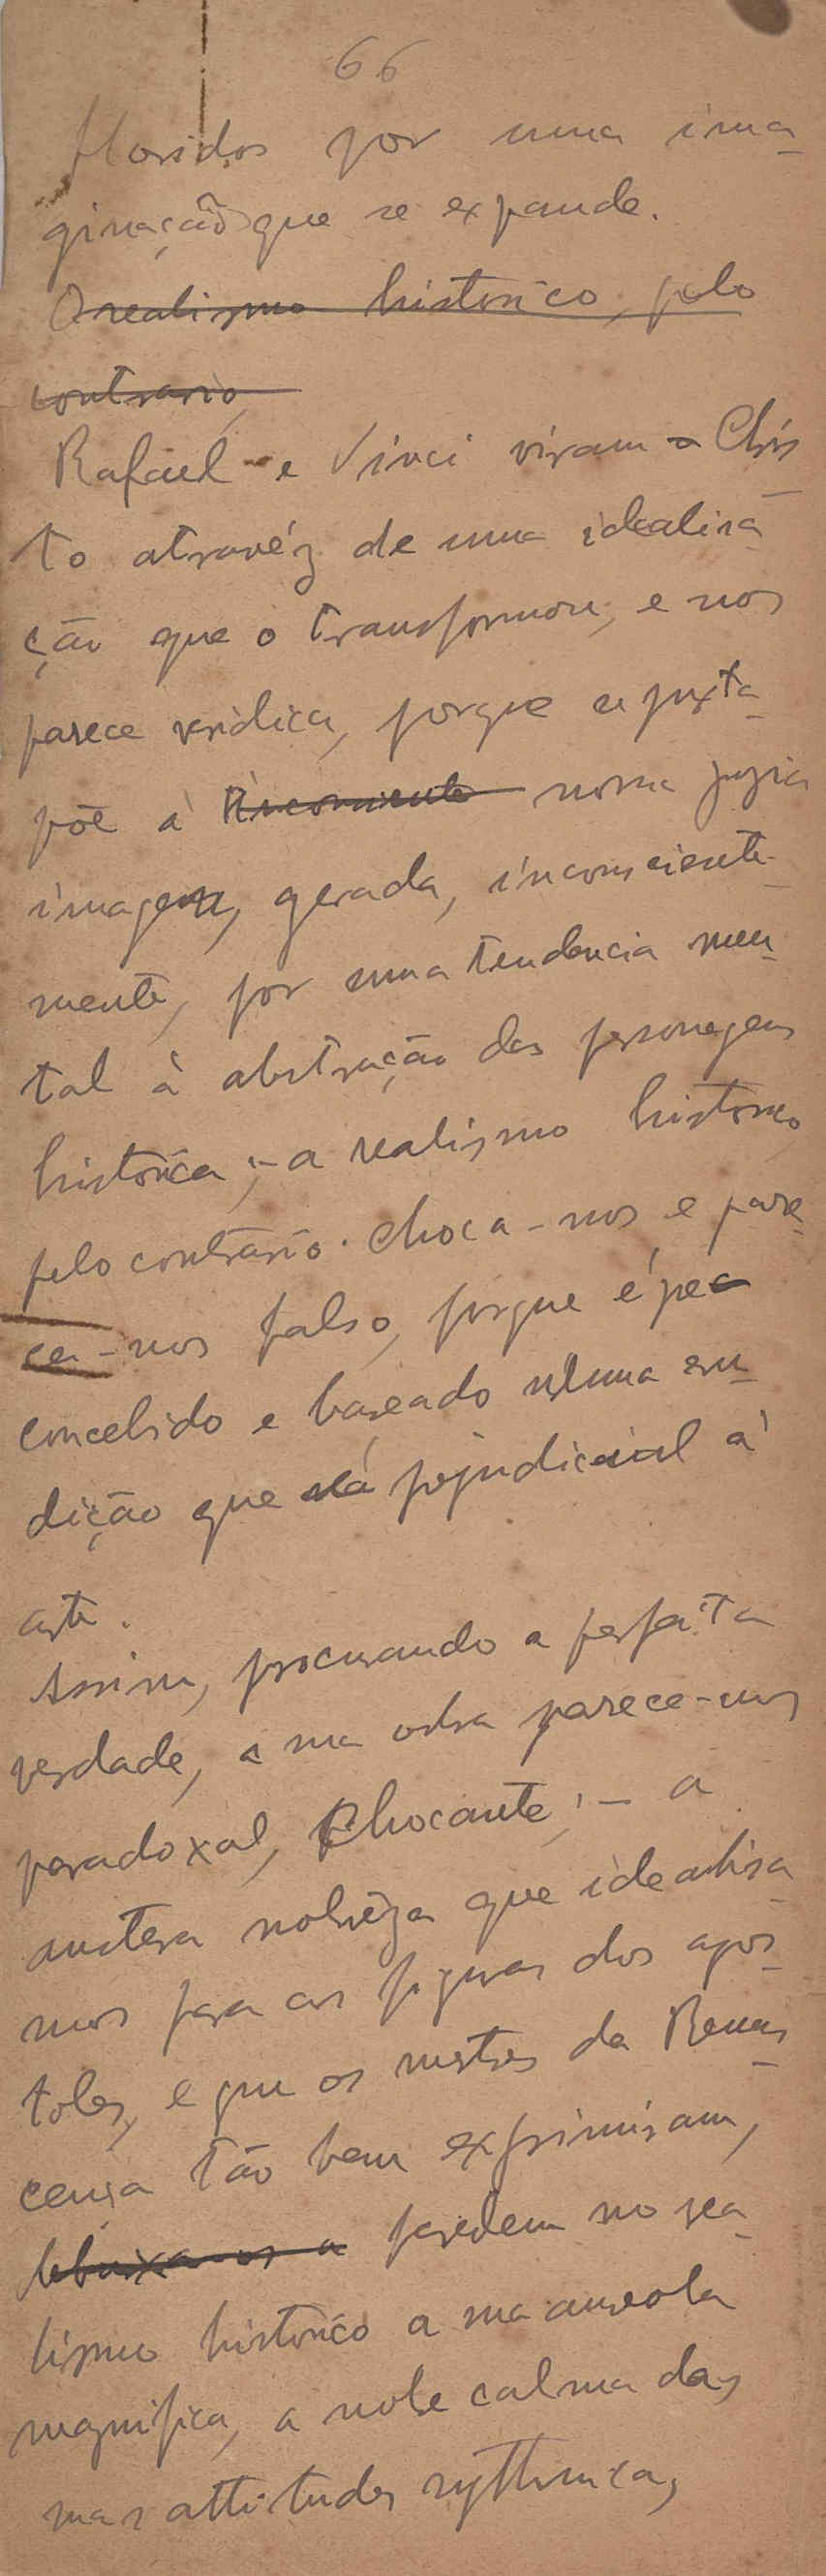 66
floridos por uma ima-
ginação que se expande.
O realismo historico, pelo
contrario,
Rafael e Vinci viram o Chris-
to atravéz de uma idealisa-
ção que o transformou, e nos
parece veridica, porque se juxta-
põe á inconsciente nossa propria
imagem, gerada, inconsciente-
mente, por uma tendencia men-
tal á abstração das personagens
historica;- o realismo historico,
pelo contrario. choca-nos, e pare-
ce-nos falso, porque é
concebido e baseado n'uma eru-
dição que prejudicial á
arte.
Assim, procurando a perfeita
verdade, a sua obra parece-nos
paradoxal, chocante;- a
austera nobreza que idealisa-
mos para as figuras dos apos-
tolos, e que os mestres da Renas-
cença tão bem exprimiram,
perdem no rea-
lismo historico a sua aureola
magnifica, a nobre calma das
suas attitudes rythmicas,